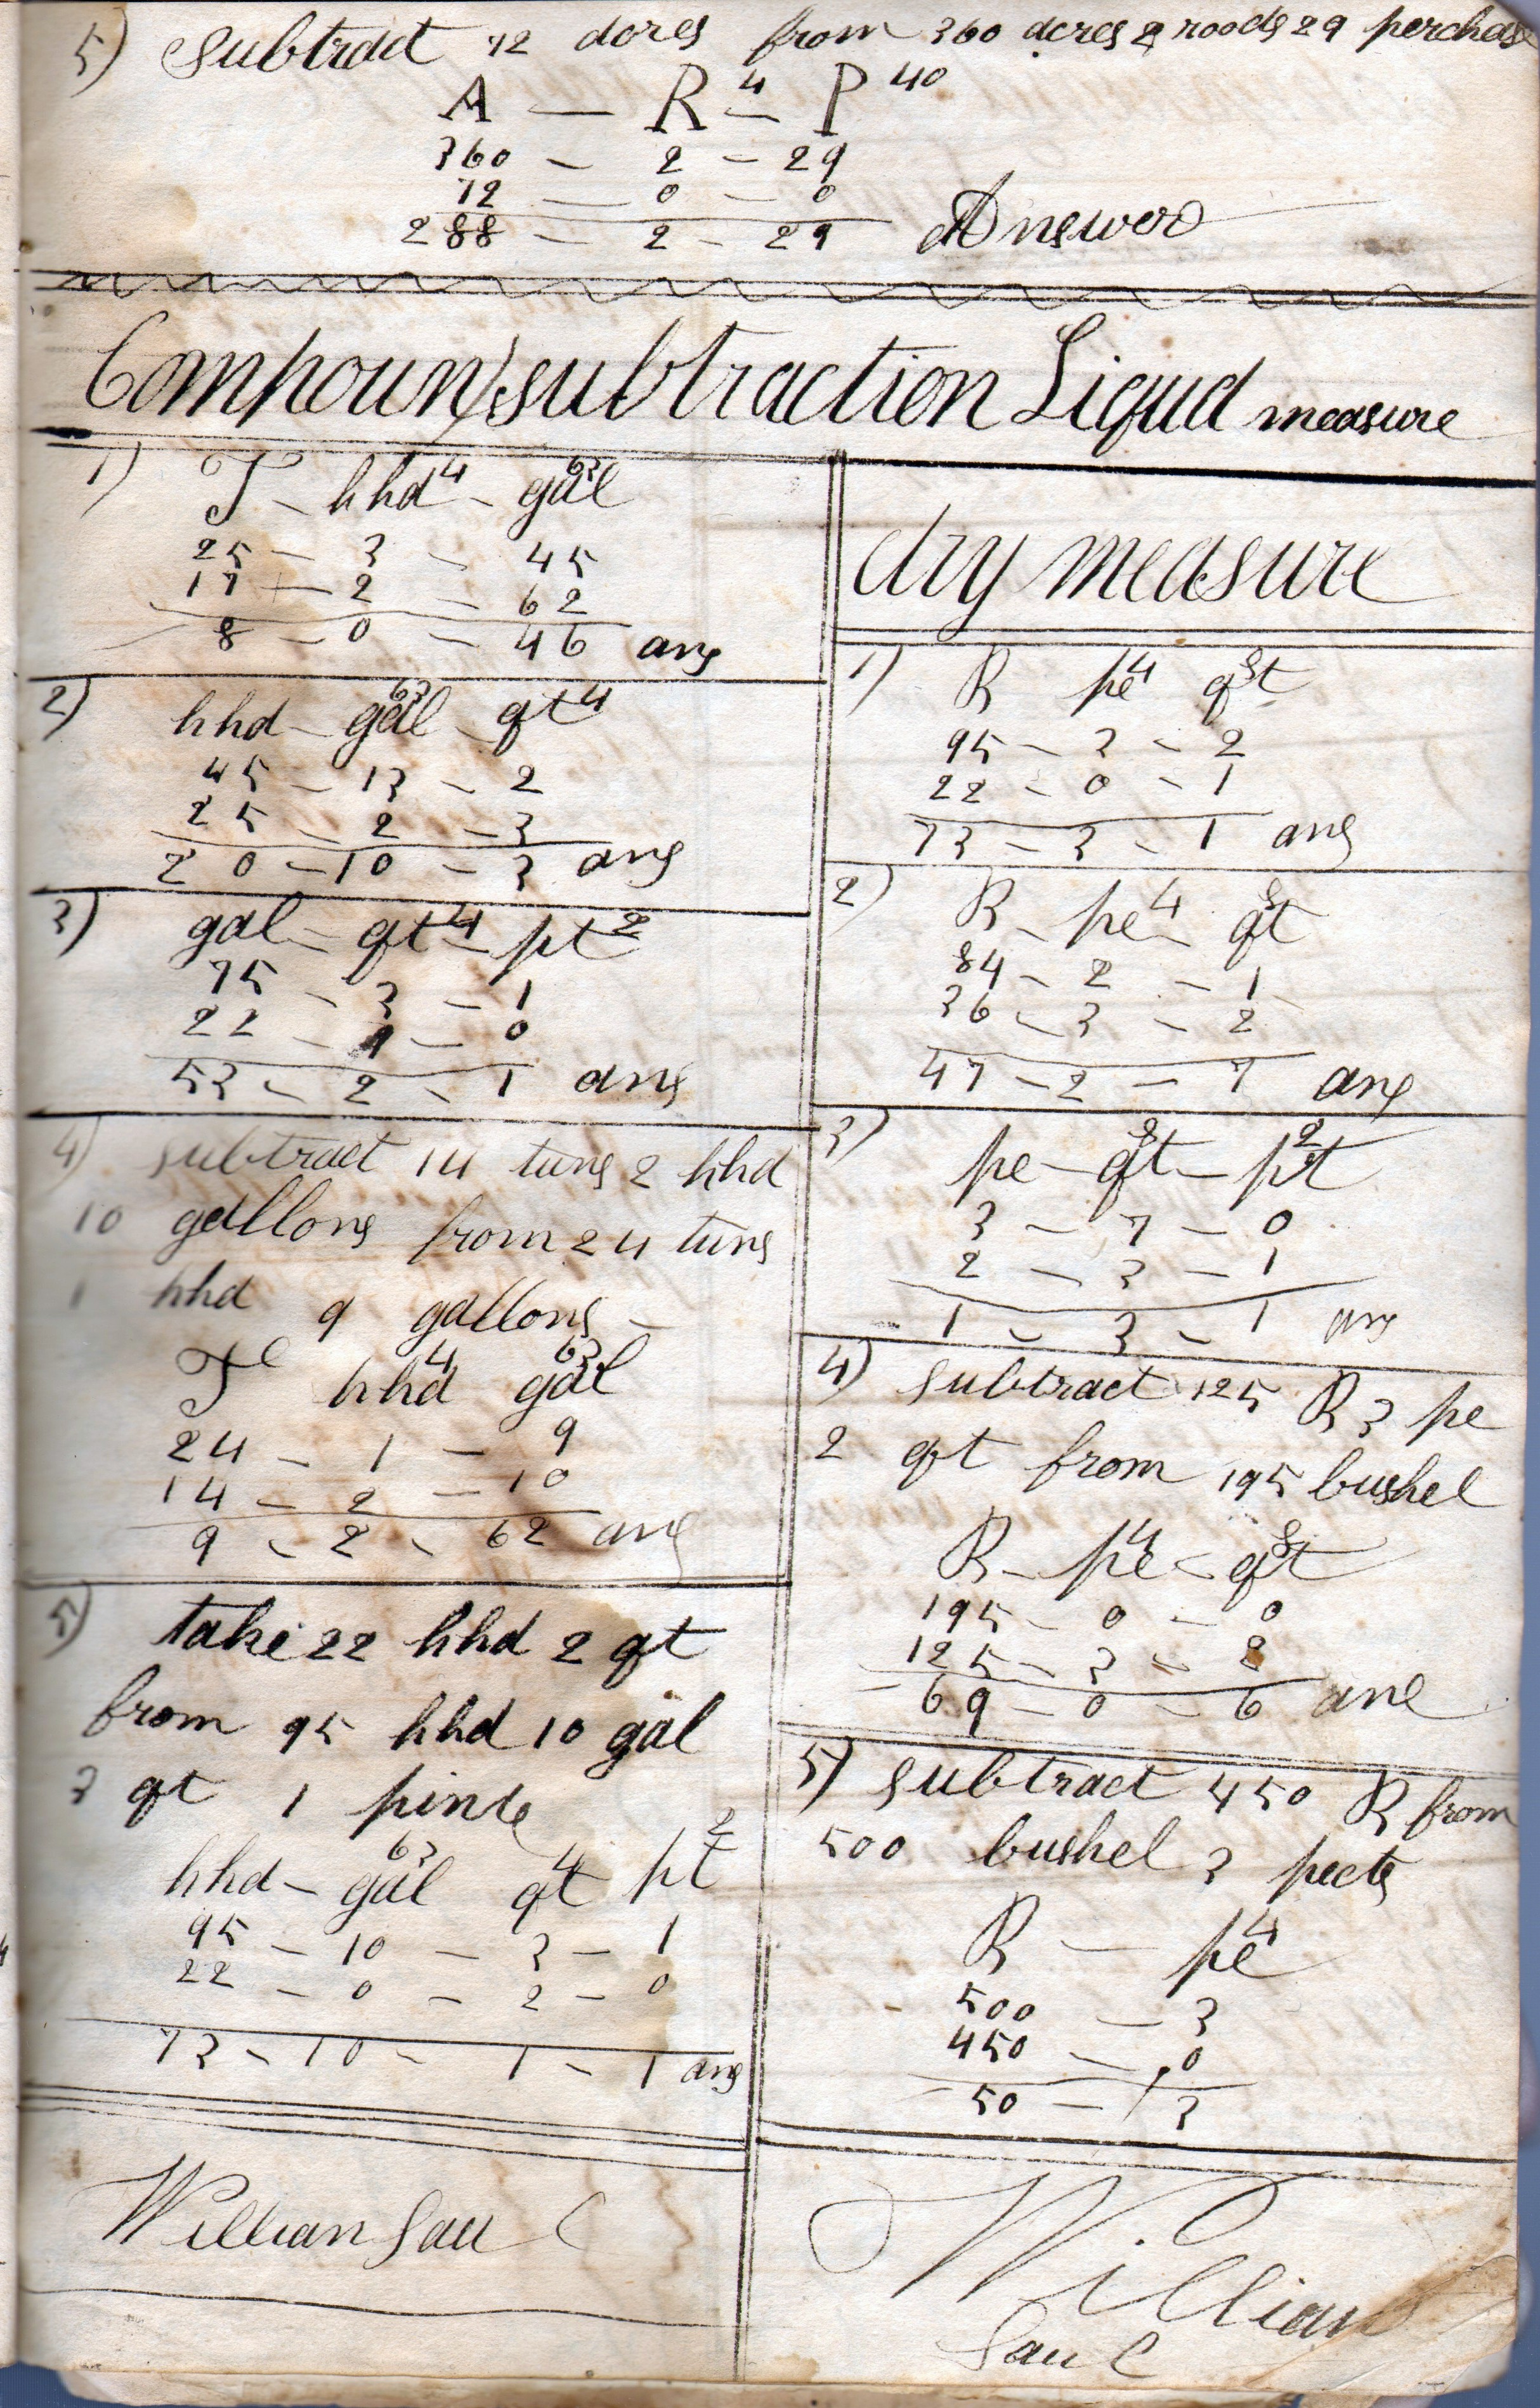 5) Subtract 72 acres from 360 acres 2 roods 29 perches
A — R 4 – P 40
360 – 2 – 29
72 — 0 – 0
288 – 2 – 29 Answer
Compound subtraction Liqud measure
1) T – hhd 4 – gal 63
25 – 3 – 45
17 – 2 – 62
8 – 0 – 46 ans
2) hhd – gal 63 – qt 4
45 – 13 – 2
25 – 2 – 3
20 – 10 – 3 ans
3) gal – qt 4 – pt 2
75 – 3 – 1
22 – 1 – 0
53 – 2 – 1 ans
4) subtract 14 tuns 2 hhd
10 gallons from 24 tuns
1 hhd 9 gallons –
T hhd 4 gal 63
24 – 1 – 9
14 – 2 – 10
9 – 2 – 62 ans
5) take 22 hhd 2 qt
from 95 hhd 10 gal
3 qt 1 pinte
hhd – gal 63 qt 4 pt 2
95 – 10 – 3 – 1
22 – 0 – 2 – 0
73 – 10 – 1 – 1 ans
William Sau C
dry measure
1) B pe 4 qt 8
95 – 3 – 2
22 – 0 – 1
73 – 3 – 1 ans
2) B – pe 4 – qt 8
84 – 2 – 1
36 – 3 – 2
47 – 2 – 7 ans
3) pe – qt 8 – pt 2
3 – 7 – 0
2 – 3 – 1
1 – 3 – 1 ans
4) subtract 125 B 3 pe
2 qt from 195 bushel
B – pe 4 – qt 8
195 – 0 – 0
125 – 3 – 2
69 – 0 – 6 ans
5) subtract 450 B from
500 bushel 3 pects
B — pe 4
500 – 3
450 – 0
50 – 3
William
Sau C